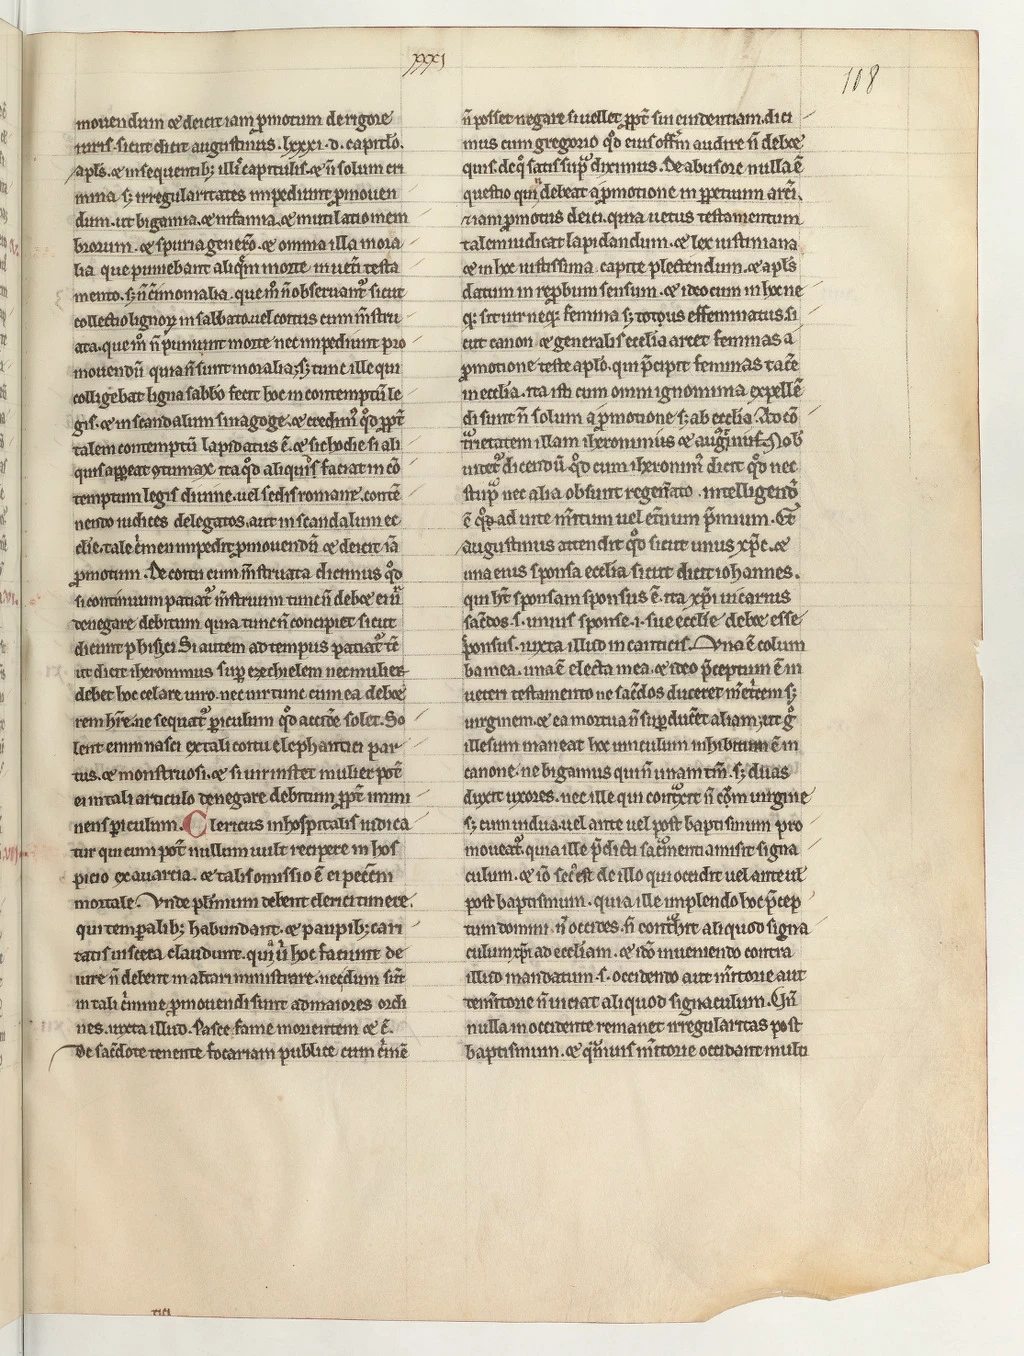 xxxi
108
mouendum & deicit iam p̱motum de rigore
iuris. sicut dicit augustinus. lxxxi. d. capitło.
apł̃s. & in sequentib; illi᷒ capitulis. & ñ solum cri
mina s; irregularitates impediunt p̱mouen
dum. ut bigamia. & infamia. & mutilatio mem
brorum. & spuria genet̃o. & omnia illa mora
lia que puniebant aliq̃m morte in uet̃i testa
mento. s; ñ c̃imonialia. que m̊ ñ obseruant᷑ sicut
collectio lignoꝝ in sabbato. uel coitus cum m̃stru
ata. que m̊ ñ puniunt morte nec impediunt pro
mouendũ quia ñ sunt moralia; s; tunc ille qui
colligebat ligna sabbo fecit hoc in contemptũ le
gis. & in scandalum sinagoge. & credim᷒ qd̊ ꝓpt̃
talem contemptũ lapidatus ẽ. & sic hodie si ali
quis appeat ꝯtumax ita qd̊ aliquis faciat in cõ
temptum legis diuine. uel sedis romane. contẽ
nendo iudices delegatos. aut in scandalum ec
clie. tale c̃men impedit p̱mouendũ & deicit iã
p̱motum. De coitu cum m̃struata dicimus qd̊
si continuum patiat᷑ m̃struum tunc ñ debet ei ũ
denegare debitum quia tunc ñ concipiet sicut
dicunt phisici. Si autem ad tempus patiat᷑ tc̃
ut dicit iheronimus sup̱ ezechielem nec mulier
debet hoc celare uiro. nec uir tunc cum ea debet
rem hr̃e. ne sequat᷑ p̱iculum qd̊ accid̃e solet. So
lent enim nasci ex tali coitu elephantici par
tus. & monstruosi. & si uir instet mulier pot̃
ei in tali articulo denegare debitum ꝓpt̃ immi
nens p̱iculum. Clericus inhospitalis iudica
tur qui cum pot̃ nullum uult recipere in hos
picio ex auaricia. & talis omissio ẽ ei pecc̃m
mortale. Vnde plr̃imum debent clerici timere.
qui temp̱alib; habundant. & paup̱ib; cari
tatis uiscera claudunt. quia u᷒ hoc faciunt de
iure ñ debent in altari ministrare. nedum sint
in tali c̃mine p̱mouendi sunt ad maiores ordi
nes. iuxta illud. Pasce fame morientem & c̃.
De sac̃dote tenente focariam publice cum c̃men
ñ posset negare si uellet ꝓpt̃ sui euidentiam. dici
mus cum gregorio qd̊ eius offm̃ audire ñ debet
quis. de q̊ satis sup̃ diximus. De abusore nulla ẽ
questio quin debeat a p̱motione in p̱petuum arc̃i.
& iam p̱motus deici. quia uetus testamentum
talem iudicat lapidandum. & lex iustiniana
& in hoc iustissima capite plectendum. & apł̃s
datum in rep̱bum sensum. & ideo cum in hoc ne
q; sit uir neq; femina s; totus effeminatus. si
cut canon & generalis ecclia arcet feminas a
p̱motione teste aplo̊. qui p̃cipit feminas tac̃e
in ecclia. ita isti cum omni ignominia expellẽ
di sunt ñ solum a p̱motione s; ab ecclia. Ad cõ
trarietatem illam iheronimus & augustini. Nob̃
uidet᷑ dicendũ. qd̊ cum iheronim᷒ dicit qd̊ nec
stup̃ nec alia obsunt regeñato. intelligend᷒
ẽ quod ad uite m̃itum uel et̃num p̃mium. Et
augustinus attendit qd̊ sicut unus xp̃c. &
una eius sponsa ecclia sicut dicit iohannes.
qui ht̃ sponsam sponsus ẽ. ita xp̃i uicarius
sac̃dos. s. unius sponse. i. sue ecclie debet esse
sponsus. iuxta illud in canticis. Vna ẽ colum
ba mea. una ẽ electa mea. & ideo p̃ceptum ẽ in
ueteri testamento ne sac̃dos duceret m̃etc̃em s;
uirginem. & ea mortua ñ sup̱duc̃et aliam; ut g̊
illesum maneat hoc uinculum inhibitum ẽ in
canone. ne bigamus qui ñ unam tm̃. s; duas
duxit uxores. nec ille qui contraxit ñ cum uirgine
s; cum uidua. uel ante uel post baptismum pro
moueat᷑. quia ille p̃dicti sac̃menti amisit signa
culum. & iõ sec᷒ est de illo qui occidit uel ante ul̃
post baptismum. quia ille implendo hoc p̃cep
tum domini ñ occides. ñ contrahit aliquod signa
culum xp̃i ad eccliam. & ido̊ inueniendo contra
illud mandatum. s. occidendo aut m̃itorie aut
tem̃itorie ñ uiciat aliquod signaculum. Vñ
nulla in occidente remanet irregularitas post
baptismum. & qm̃uis m̃itorie occidant multi